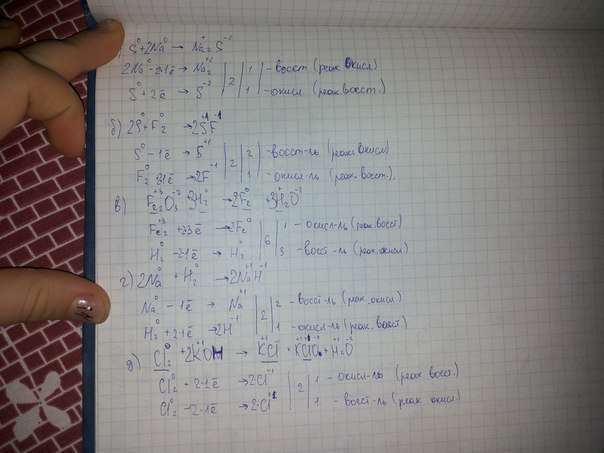 S⁰+2Na⁰ → Na₂⁺S⁻²
2Na⁰-2·1ē → Na₂⁺¹ | 2 | 1 - восст (реак. окисл)
S⁰+2ē → S⁻² | 1 - окисл (реак. восст.)
б) 2S⁰+F₂⁰ → 2S⁺¹F⁻¹
S⁰-1ē → S⁺¹ | 2 | 2 - восст-ль (реак. окисл)
F₂⁰ 2·1ē → 2F⁻¹ | 1 - окисл-ль (реак. восст.)
в) Fe₂⁺³O₃⁻² 3H₂⁰ → 2Fe⁰ +3H₂O
Fe₂⁺³ +2·3ē → 2Fe⁰ | 6 | 1 - окисл-ль (реак. восст)
H₂⁰ -2·1ē → H₂ | 3 - восст-ль (реак. окисл)
г) 2Na⁰ + H₂⁰ → 2Na⁺¹H⁻¹
Na⁰ - 1ē → Na⁺¹ | 2 | 2 - восст-ль (реак. окисл)
H₂⁰ + 2·1ē → 2H⁻¹ | 1 - окисл-ль (реак. восст)
д) Cl₂⁰ +2KOH → KCl + KClO + H₂O
Cl₂⁰ + 2·1ē → 2Cl⁻¹ | 2 | 1 - окисл-ль (реак восст.)
Cl₂⁰ - 2·1ē → 2Cl⁺¹ | 1 - восст-ль (реак окисл)